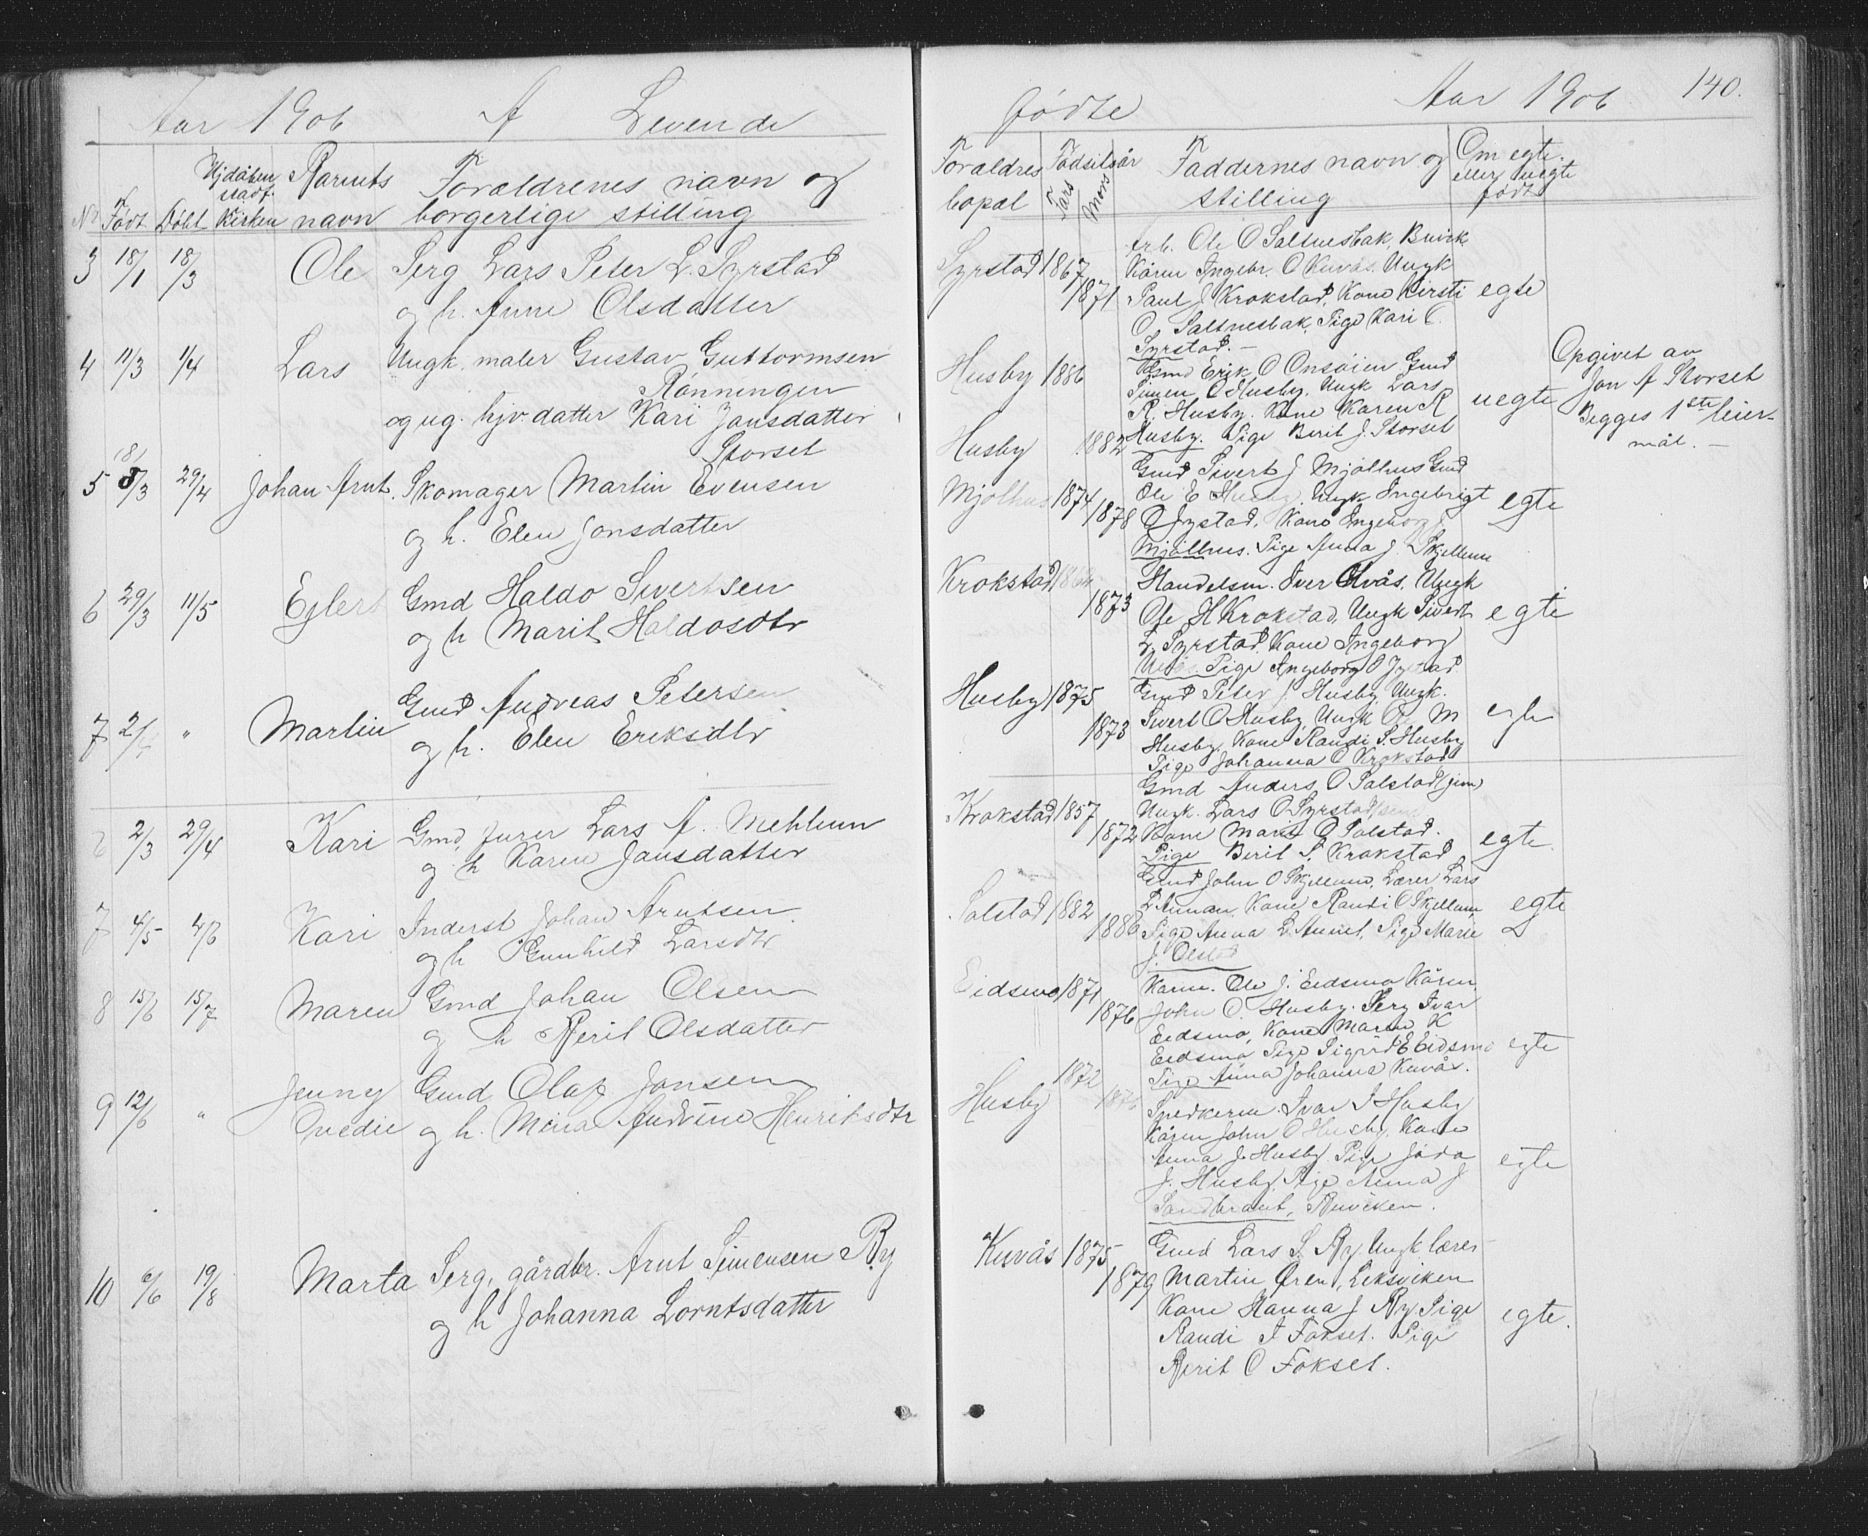 Aar 1906 A Levende
No Født Døbt Hjdøben stadf. Kirken Barnets navn Forældrenes navn og borgerlige stilling
3 18/1 18/3 Ole Serg Lars Peter L. Syrstad
og h. Anne Olsdatter
4 11/3 1/4 Lars Ungk. maler Gustav Guttormsen
Rønningen
og ug. hjv. datter Kari Jonsdatter
Storset
5 8/3 29/4 Johan Arnt. Skomager Martin Evensen
og h. Elen Jonsdatter
6 29/3 11/5 Ejlert Gmd Haldo Sivertsen
og h Marit Haldosdtr
7 2/4 " Martin Gmd Andreas Petersen
og h. Elen Eriksdtr
6 2/3 29/4 Kari Gmd, Lars A. Mehlum
og h Karen Jonsdatter
7 4/5 4/6 Kari Inderst Johan Arntsen
og h Gunhild Larsdtr
8 15/6 15/7 Maren Gmd Johan Olsen
og h Berit Olsdatter
9 12/6 " Jenny Gmd Olaf Jonsen
og h. Mina Andrine Henriksdtr
10 6/6 19/8 Marta Serg, gårdbr. Arnt Simensen By
og h Johanna Lorntsdatter
fødte Aar 1906 140.
Forældres bopæl Fødselsår Fars Mors Faddernes navn og stilling Om egte eller uegte født
Syrstad 1867 Ole O Saltnesbak, Buvik
Ingebr. O Kuvås, Ungk
1871 Paul J Krokstad, Kone Kirsti egte
O, Saltnesbak, Pige Kari
Syrstad.
Husby 1886 Gmd Erik O Onsøien Gmd
Simen O Husby, Ungk Lars
R. Husby. Kone Karen R uegte
Husby 1882 Husby. Pige Berit J. Storset
Opgivet av
Jon A Storset
Begges 1ste leier-
mål. —
Mjølhus 1874 Gmd Sivert J Mjølhus Gmd
Ole E Husby, Ungk Ingebrigt egte
1878 O Jystad, Kone Ingeborg J
Mjølhus. Pige Anna J. Skjellum
Krokstad Handelsm. Iver Ungk
1873 Ole H Krokstad, Ungk Sivert egte
L. Syrstad, Kone Ingeborg
Pige Ingeborg O Jystad
Husby 1875 Gmd Peter J Husby, Ungk.
1873 Sivert O Husby, Ungk M egte
Husby, Kone Randi S. Husby
Pige Johanna O Krokstad
Krokstad 1857 Gmd Anders O Solstad
Ungk. Lars O Syrstad
1872 Kone Marit O Solstad. egte
Pige Berit S. Krokstad
Solstad 1882 Gmd John O Skjellum, Lærer Lars
Kone Randi O Skjellum, egte
1886 Pige Anna L. Pige Marie
J. Olstad
Eidsmo 1871 Ole J. Eidsmo
1876 John O. Husby. Serg Ivar
Eidsmo, Kone K
Eidsmo Pige Sigrid E Eidsmo egte
Pige Anna Johanna Kuvås.
Husby 1872 Ivar J Husby
John O Husby. Kone
Anna J. Husby, Pige egte
J. Husby Pige Anna J
Buvikén.
Kuvås 1875 Gmd Lars S. By, Ungk lærer
1879 Martin Øren, Leksviken
Kone Hanna J By, Pige
Randi J Fokset. Pige egte.
Berit O Fokset.